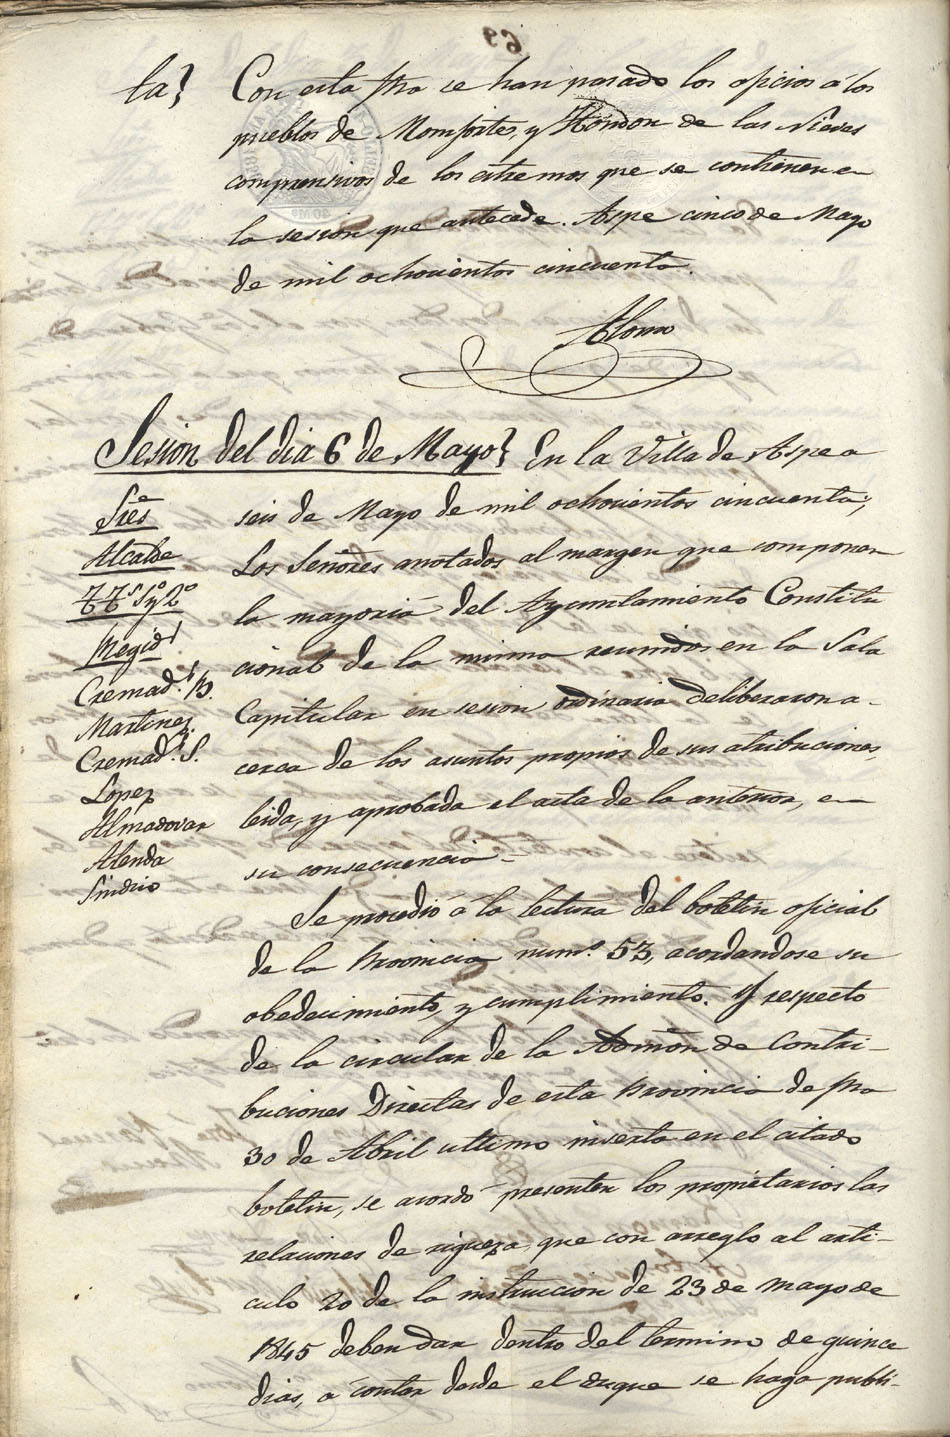 ta}
Con esta fha se han pasado los oficios á los
pueblos de Monforte, y Hondon de las Nieves
comprensivos de los estremos que se contienen en
la sesion que antecede. Aspe cinco de Mayo
de mil ochocientos cincuenta.
Sesion del dia 6 de Mayo} En la Villa de Aspe a
seis de Mayo de mil ochocientos cincuenta;
Los Señores anotados al margen que componen
la mayoria del Ayuntamiento Constitu
cional de la misma reunidos en la Sala
Capitular en sesion ordinaria deliberaron a-
cerca de los asuntos propios de sus atribuciones,
leida, y aprobada el acta de la anterior, en
su consecuencia-
Sres
Alcalde
TTs 1º y 2º
Regid.s
Cremad.s B.
Martinez.
Cremad.s S.
Lopez
Almodovar
Alenda
Sindico
Se procedió á la lectura del boletin oficial
de la Provincia num.º 53, acordandose su
obedecimiento, y cumplimiento. Y respecto
de la circular de la Admon de Contri-
buciones Directas de esta Provincia de fha
30 de Abril ultimo inserta en el citado
boletin, se acordó presenten los propietarios las
relaciones de riqueza, que con arreglo al arti-
culo 20 de la instruccion de 23 de Mayo de
1845 deben dar dentro del termino de quince
dias, a contar desde el en que se haga publi-